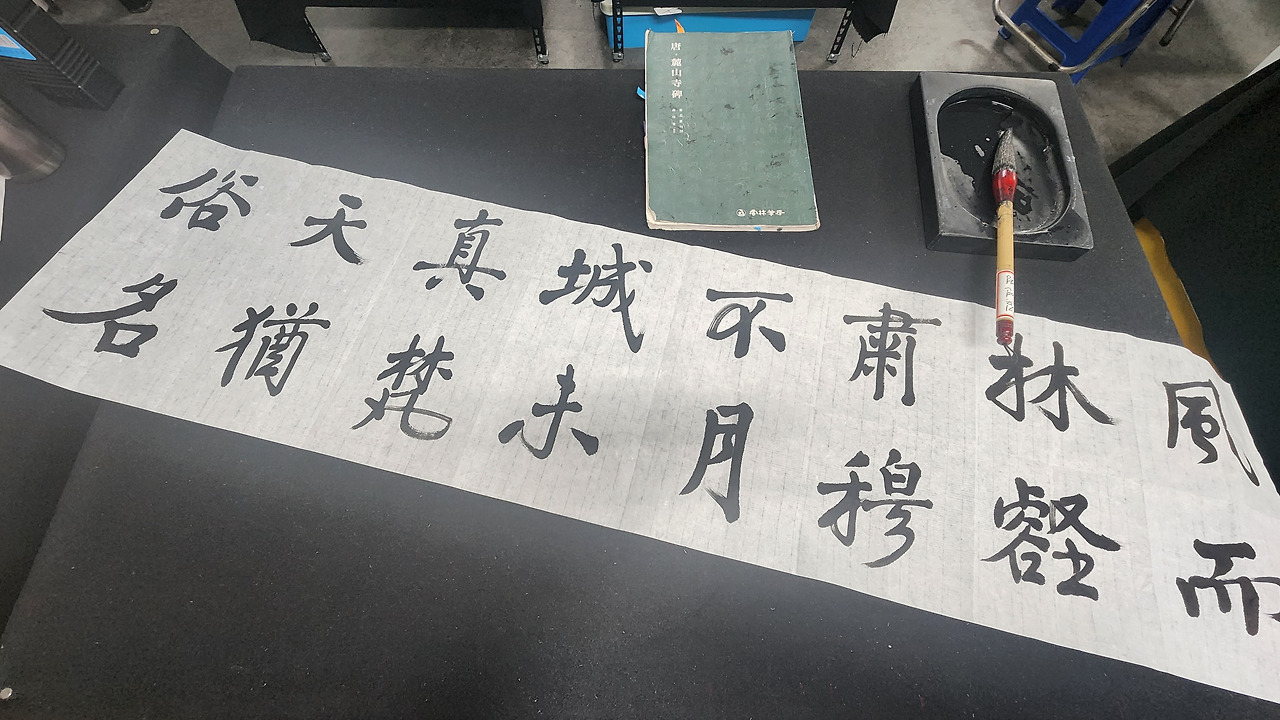 唐·麓山寺碑
雲林筆房
風而
林壑
肅穆
不月
城未
真梵
天猶
俗名